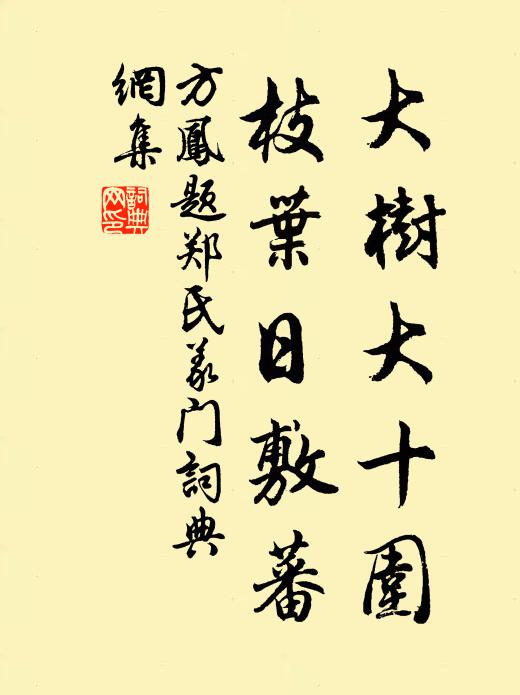 大樹大十圍
枝葉日敷蕃
方鳳題郑氏義门詞典
網集
詞典
网印